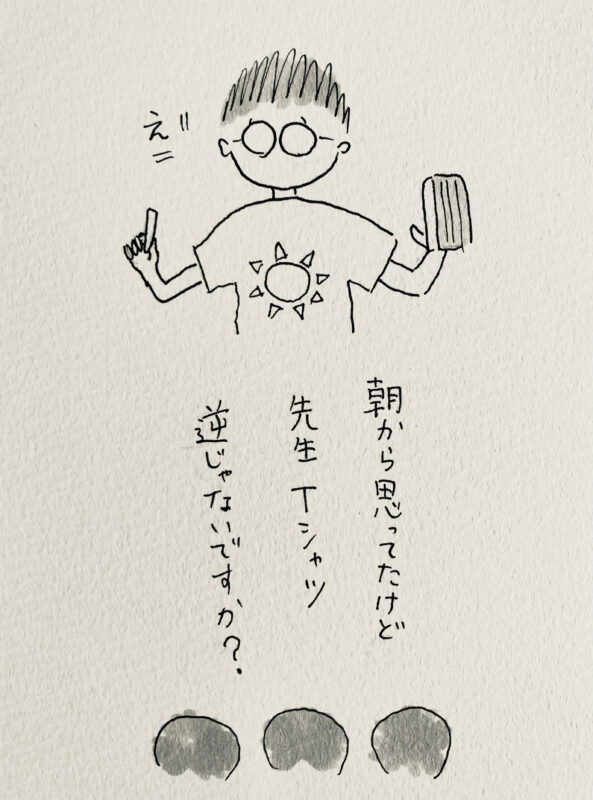 え゛
朝から思ってたけど
先生 Tシャツ
逆じゃないですか?